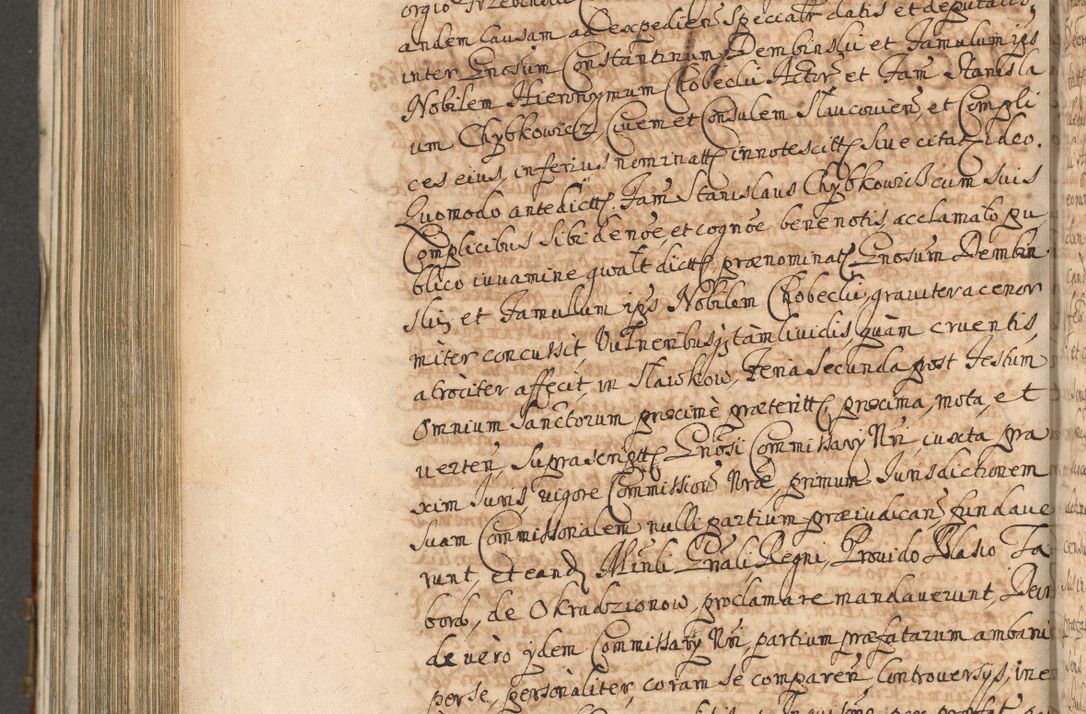 andem Causam ad expedien Specialr datis et deputatis
inter Gnosum Constantinum Dembinslii et Famulum ips
Nobilem Hieronymum Chobeclii Actor et Fam Stanisla
um Chybkowicz, Civem et Consulem Slaucovien, et Compli
ces eius, inferius nominatt innotescitt, Sive citat Ideo.
Quomodo antedictt Fam Stanislaus Chybkowicz cum suis
Complicibus Sibi de noe, et cognoe bene notis, acclamato pu
blico iuvamine gwalt dictt, prænominatt Gnosum Dembin
slii, et Famulum ips Nobilem Chobeclii, graviter ac enor
miter concussit, Vulneribusq tàm lividis, quàm cruentis
atrociter affecit, in Slawkow, Feria Secunda post Festum
Omnium Sanctorum proximè præteritt, proxima, mota, et
verten, Suprascriptt Gnosi Commissary Nri, iuxta pra
xim Iuris, vigore Commission Nræ, primum Iurisdictionem
suam Commissorialem nulli partium præiudican, fundave
runt, et eand Minli Gnali Regni, Provido Blasio Ta
borb, de Okradzionow, proclamare mandaverunt, Dein
de vero ydem Commissary Nri, partium præfatarum ambarū
per se, personaliter coram se comparen, Controversys, in e